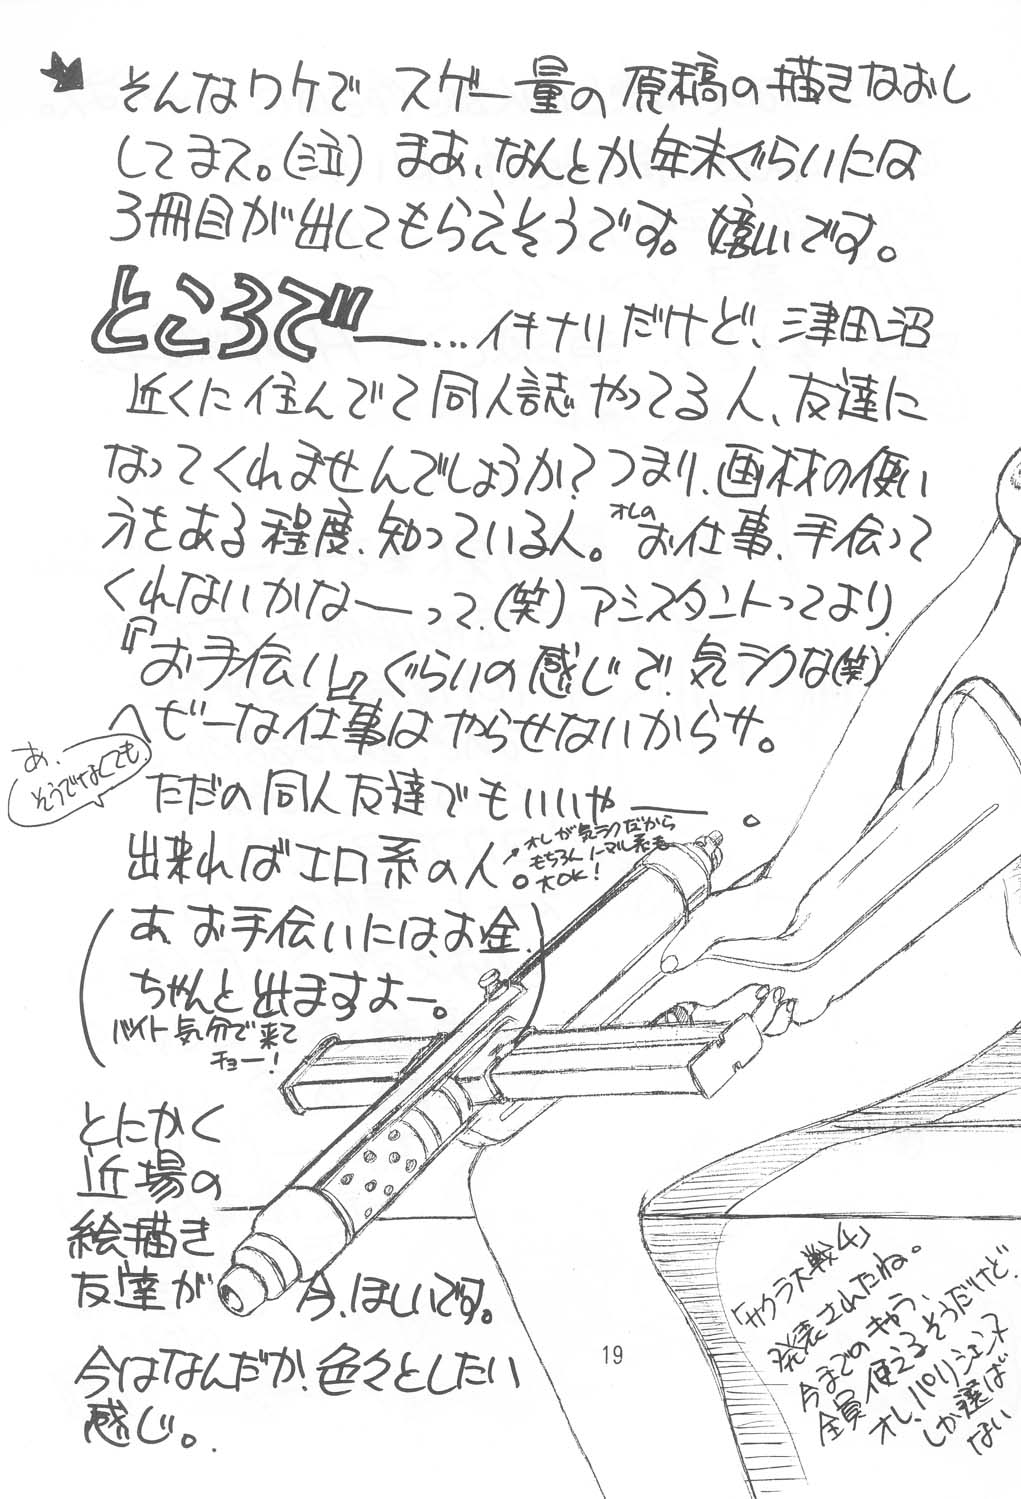 そんなワケで スゲー量の原稿の描きなおし
してまス。(泣) まあ、なんとか年末ぐらいには
3冊目が出してもらえそうです。嬉しいです。
ところでー...イキナリだけど、津田沼
近くに住んでて同人誌やってる人、友達に
なってくれませんでしょうか？つまり、画材の使い
方をある程度、知っている人。オレのお仕事、手伝って
くれないかなーーって、(笑) アシスタントってより、
『お手伝い』ぐらいの感じで！気ラクな(笑)
ヘビーな仕事はやらせないからサ。
あ、
そうでなくても、
ただの同人友達でもいいやー。
出来ればエロ系の人。
オレが気ラクだから
もちろんノーマル系も
大OK！
(あ、お手伝いには、お金、
ちゃんと出ますよー。
バイト気分で来て
チョー！)
とにかく
近場の
絵描き
友達が 今、ほしいです。
今はなんだか、色々としたい
感じ。
19
「サクラ大戦4」
発表されたね。
今までのキャラ、
全員使えるそうだけど、
オレ、パリシェンヌ
しか選ば
ない